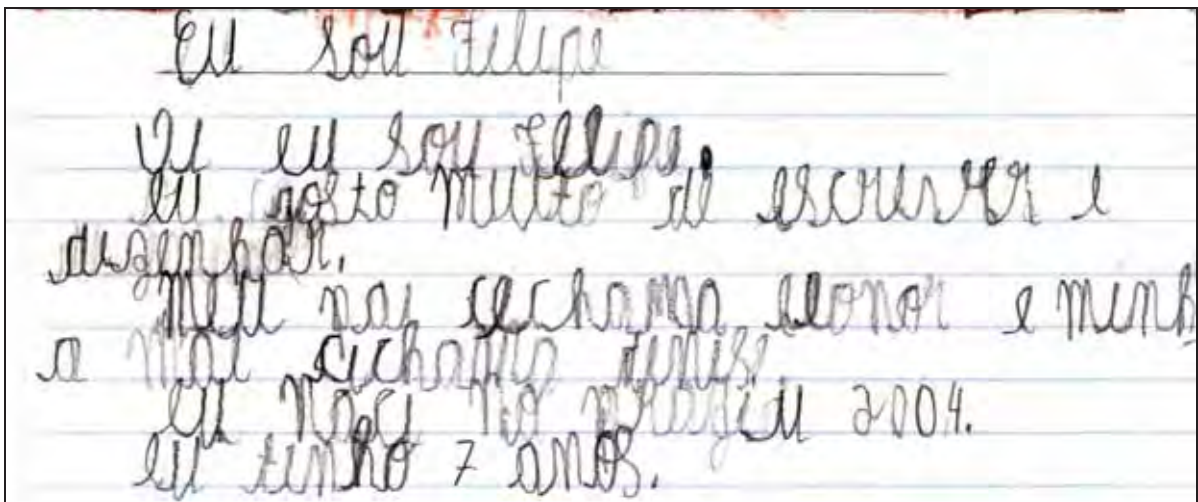 Eu sou Felipe
Oi eu sou Felipe.
eu gosto muito de escrever e
dezenhar.
Meu pai cechama eleonor e minh
a mai cichama denise
eu naci no dia 2004.
eu tenho 7 anos.